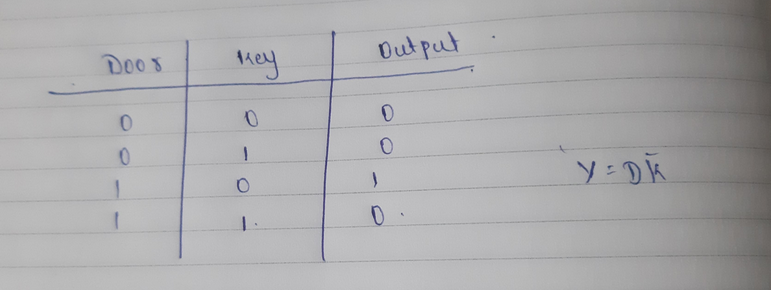 Door Key Output
0 0 0
0 1 0
1 0 1
1 1 0
Y = DK̄